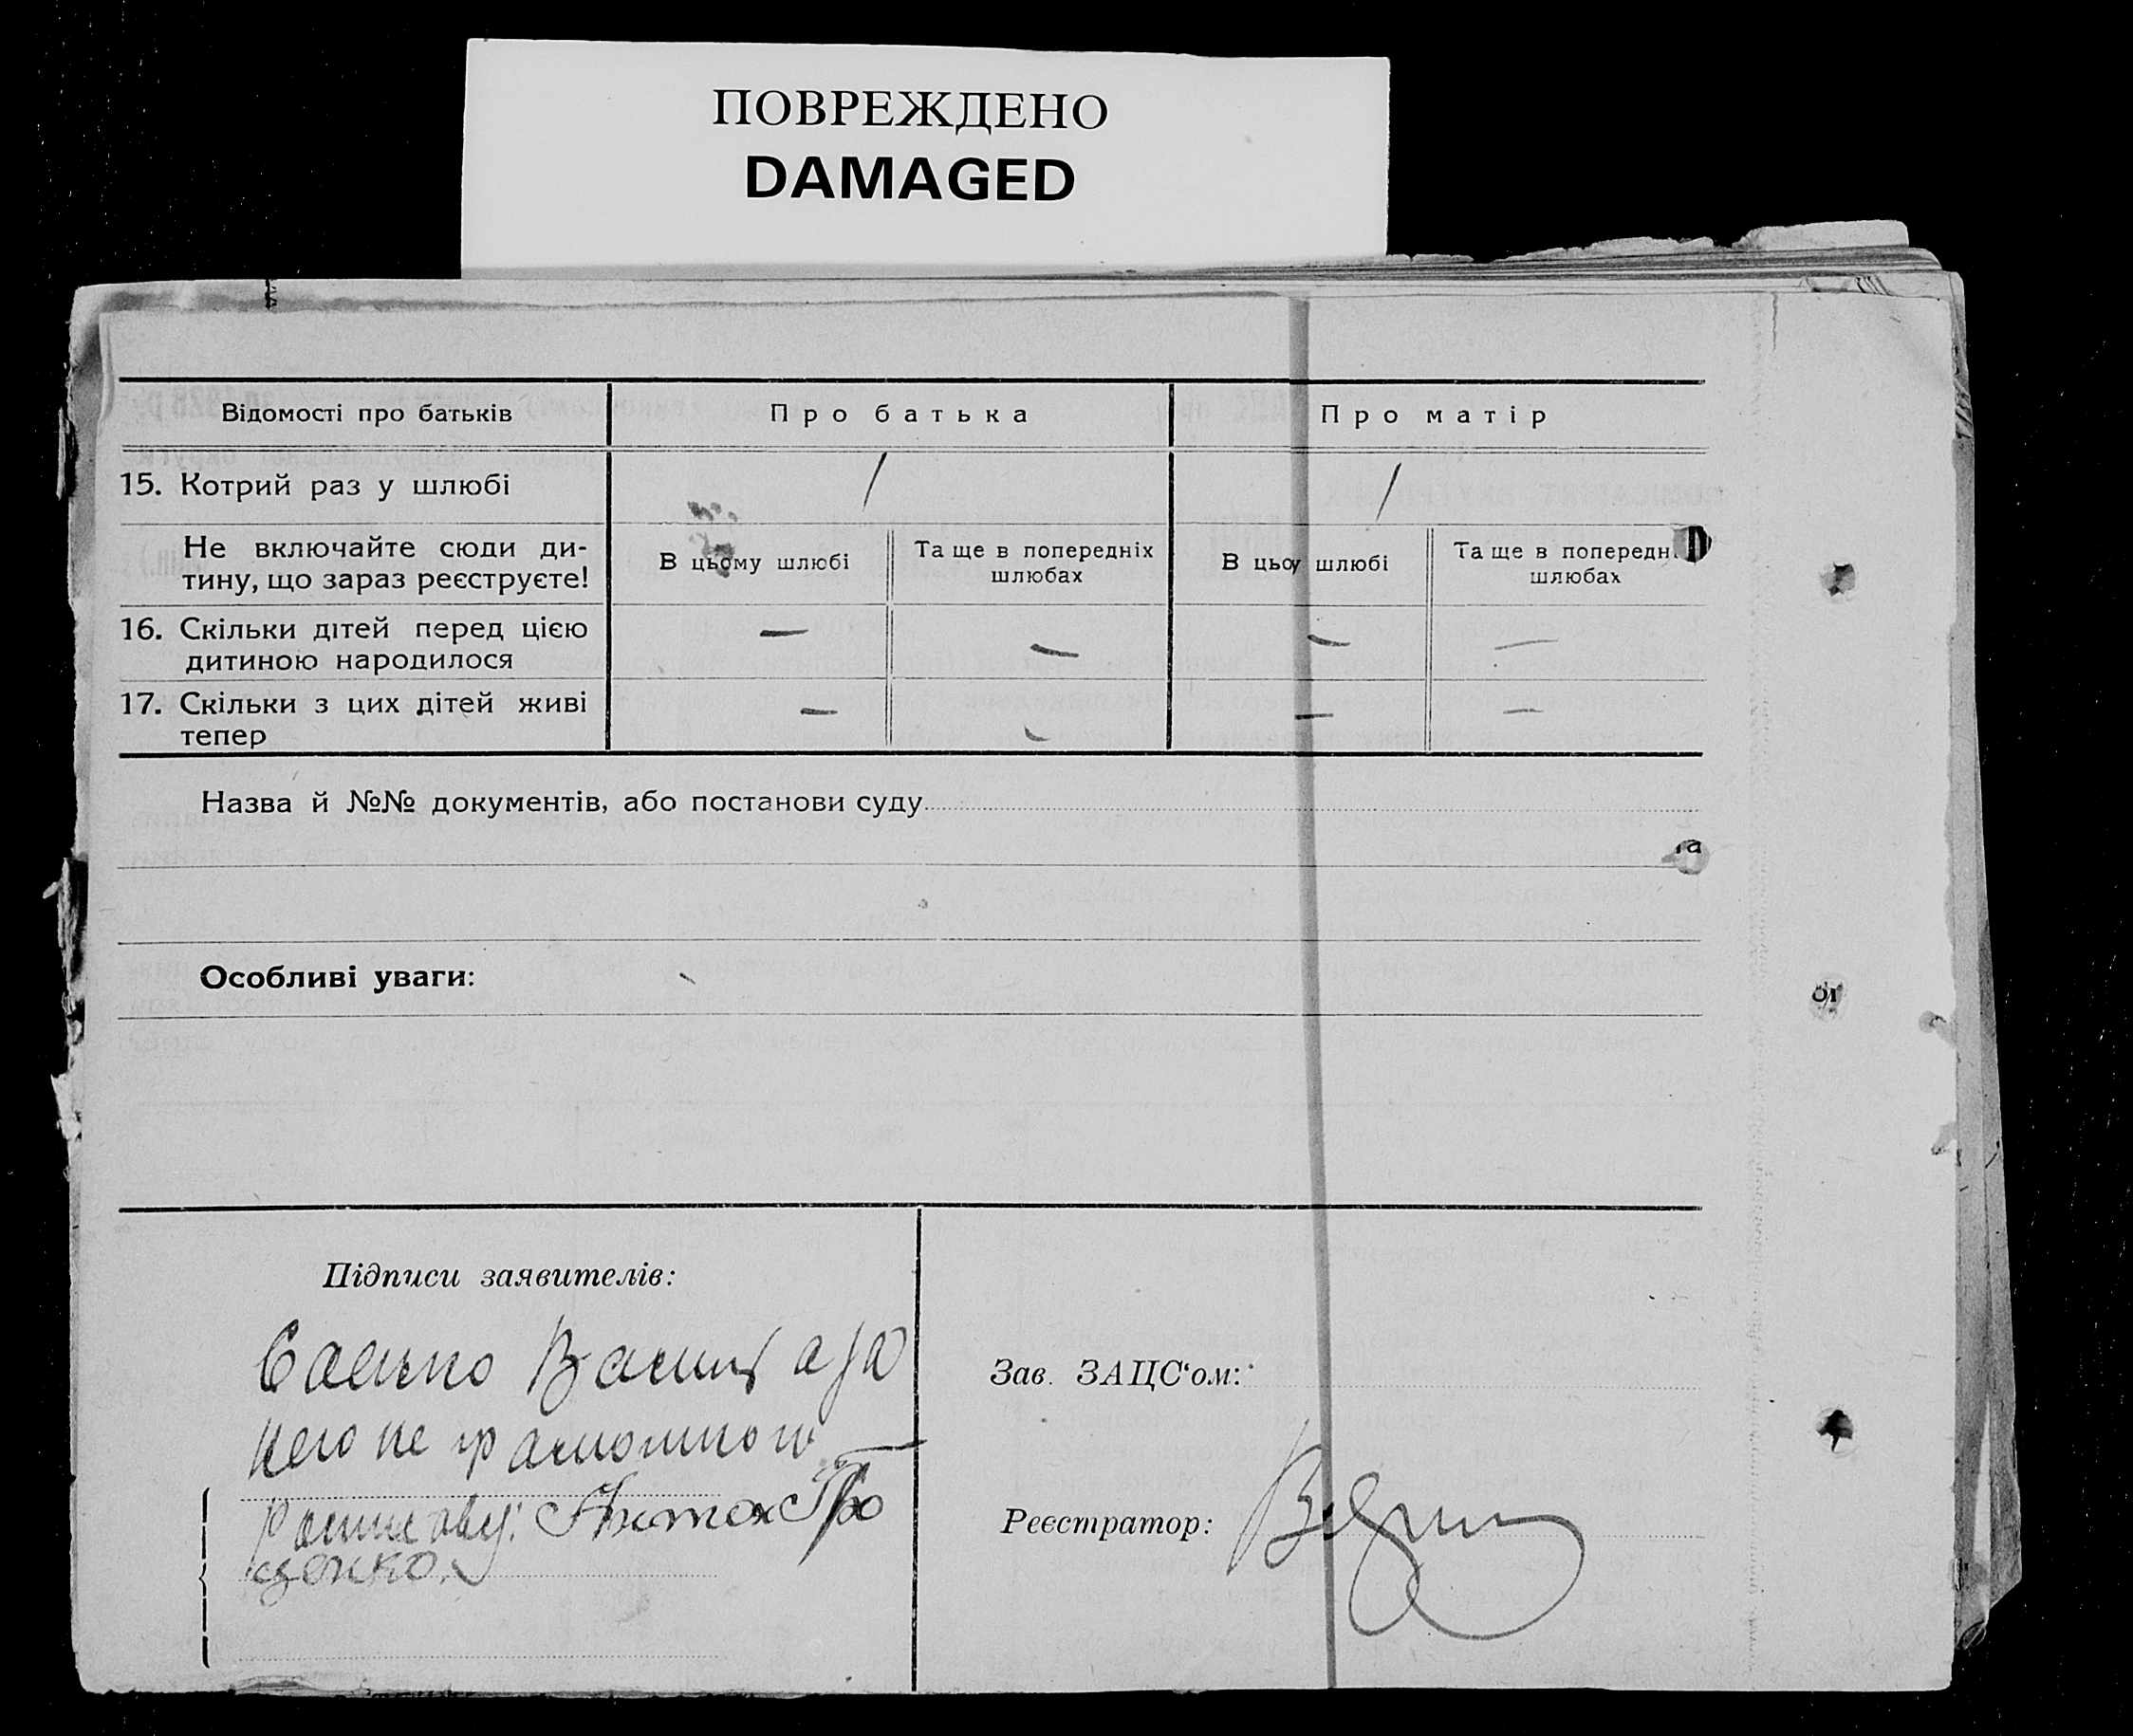 ПОВРЕЖДЕНО
DAMAGED
Відомості про батьків
Про батька
Про матір
15. Котрий раз у шлюбі
/
/
Не включайте сюди ди-
тину, що зараз реєструєте!
В цьому шлюбі
Та ще в попередніх
шлюбах
В цьоу шлюбі
Та ще в попередн
шлюбах
16. Скільки дітей перед цією
дитиною народилося
— — — —
17. Скільки з цих дітей живі
тепер
— — — —
Назва й №№ документів, або постанови суду
Особливі уваги:
Підписи заявителів:
Василь а за
него не грамотного
росписавсь: Антон Про
ценко.
Зав. ЗАЦС‘ом:
Реєстратор: